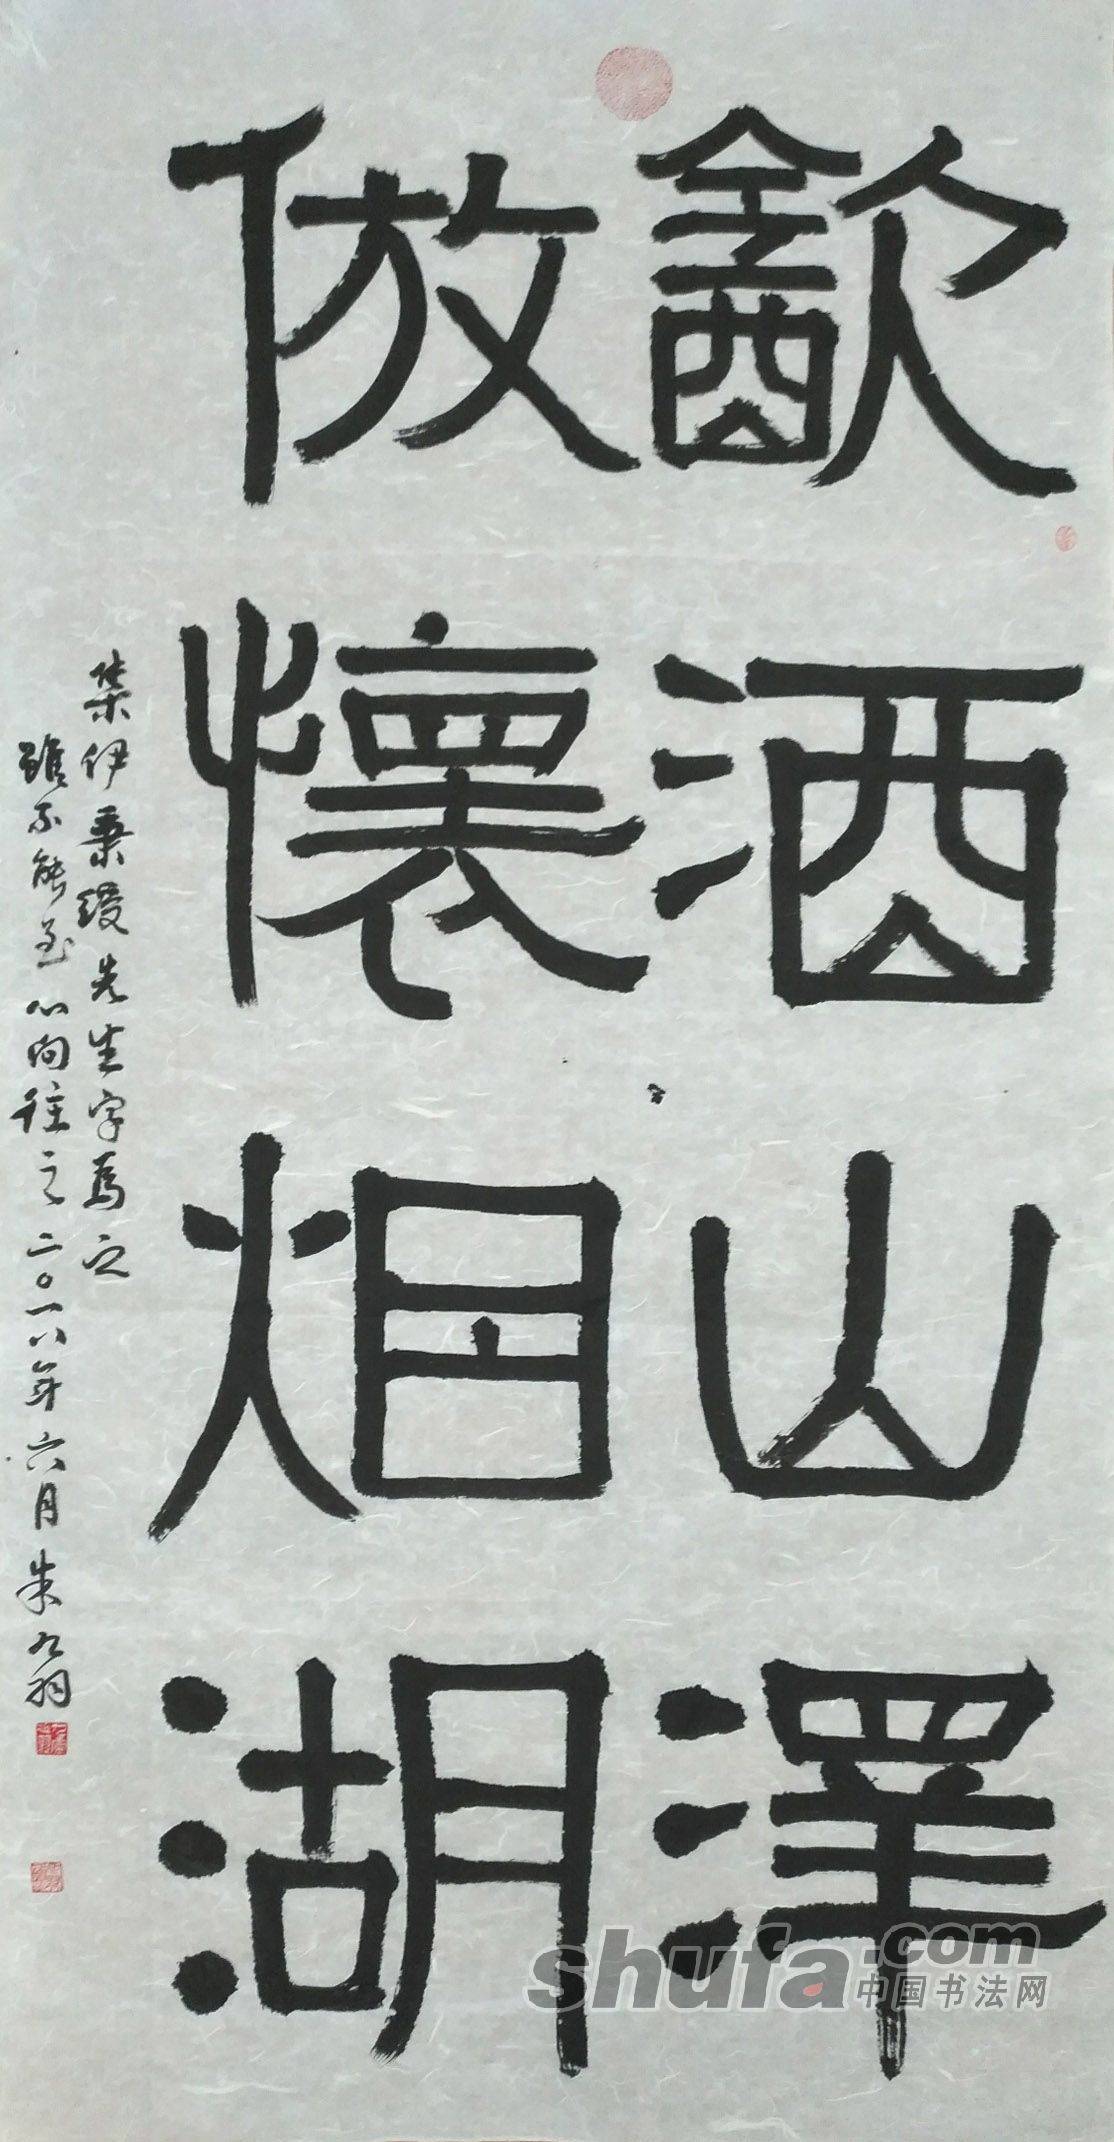 㱃酒山澤
倣懷烟湖
集伊秉绶先生字爲之
雖不能至心向往之二〇一八年六月朱九翔
shufa.com
中国书法网